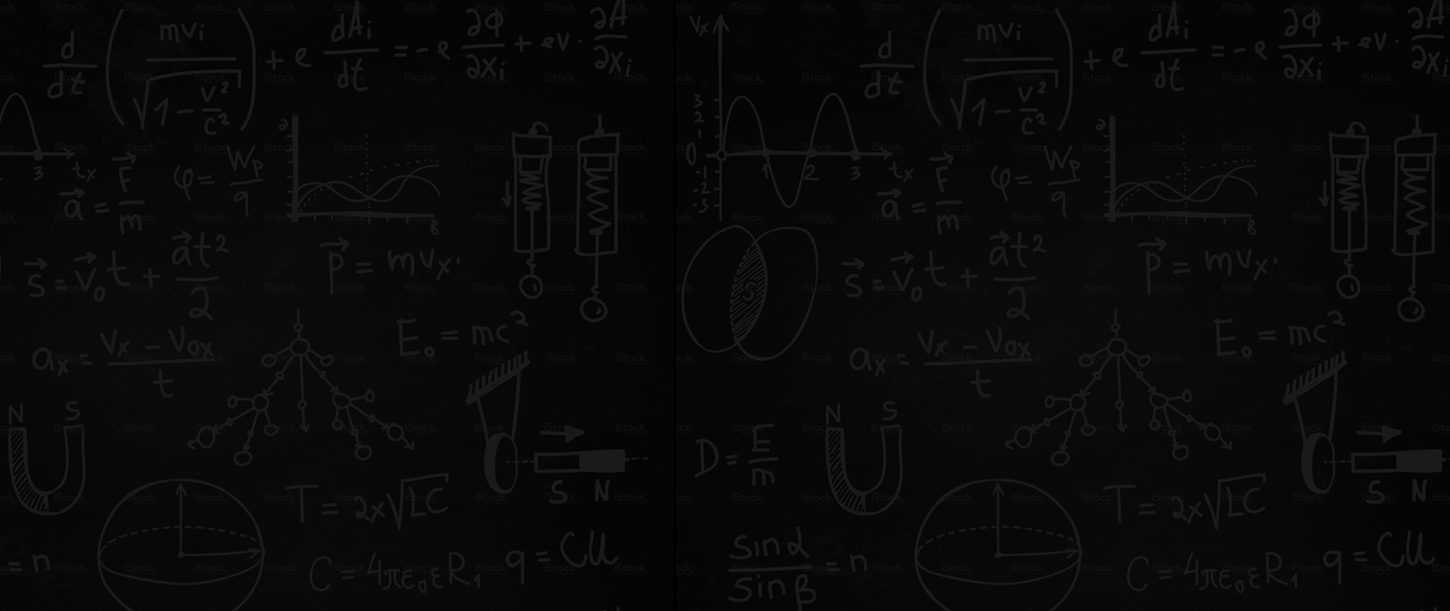 d/dt (mvᵢ/√1-v²/c²) + e dAᵢ/dt = -e ∂Φ/∂xᵢ + ev · ∂A/∂xᵢ
3 tₓ
a⃗ = F⃗/m
φ = Wₚ/q
s⃗ = v⃗₀t + a⃗t²/2
p⃗ = mvₓ
E₀ = mc²
aₓ = vₓ - v₀ₓ/t
N S
S N
T = 2x√LC
= n
C = 4πε₀εR₁
q = CU
Vₓ
3
2
1
0 1 2 3 tₓ
-1
-2
-3
d/dt (mvᵢ/√1-v²/c²) + e dAᵢ/dt = -e ∂Φ/∂xᵢ + ev · ∂A/∂xᵢ
a⃗ = F⃗/m
φ = Wₚ/q
S
s⃗ = v⃗₀t + a⃗t²/2
p⃗ = mvₓ
E₀ = mc²
aₓ = vₓ - v₀ₓ/t
N S
D = E/m
S N
T = 2x√LC
sinα/sinβ = n
C = 4πε₀εR₁
q = CU